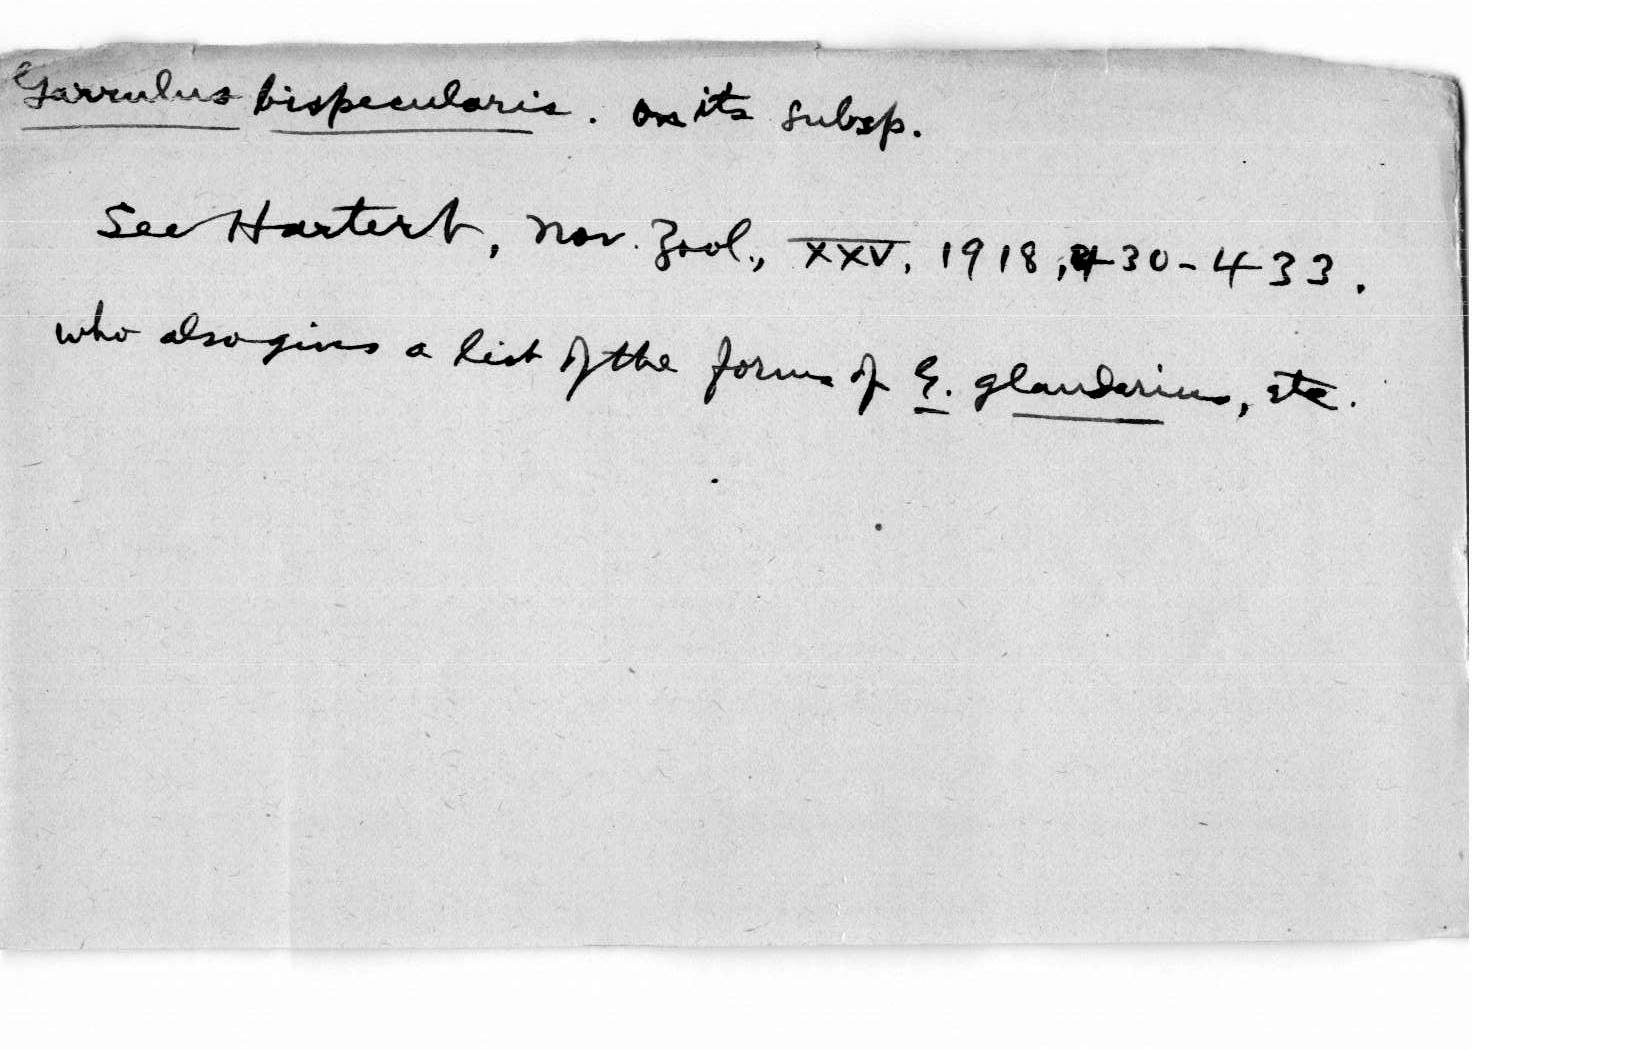 Garrulus bispecularis. on its subsp.
See Hartert, Nov. Zool., XXV, 1918, 430-433.
who also gives a list of the forms of G. glandarius, etc.